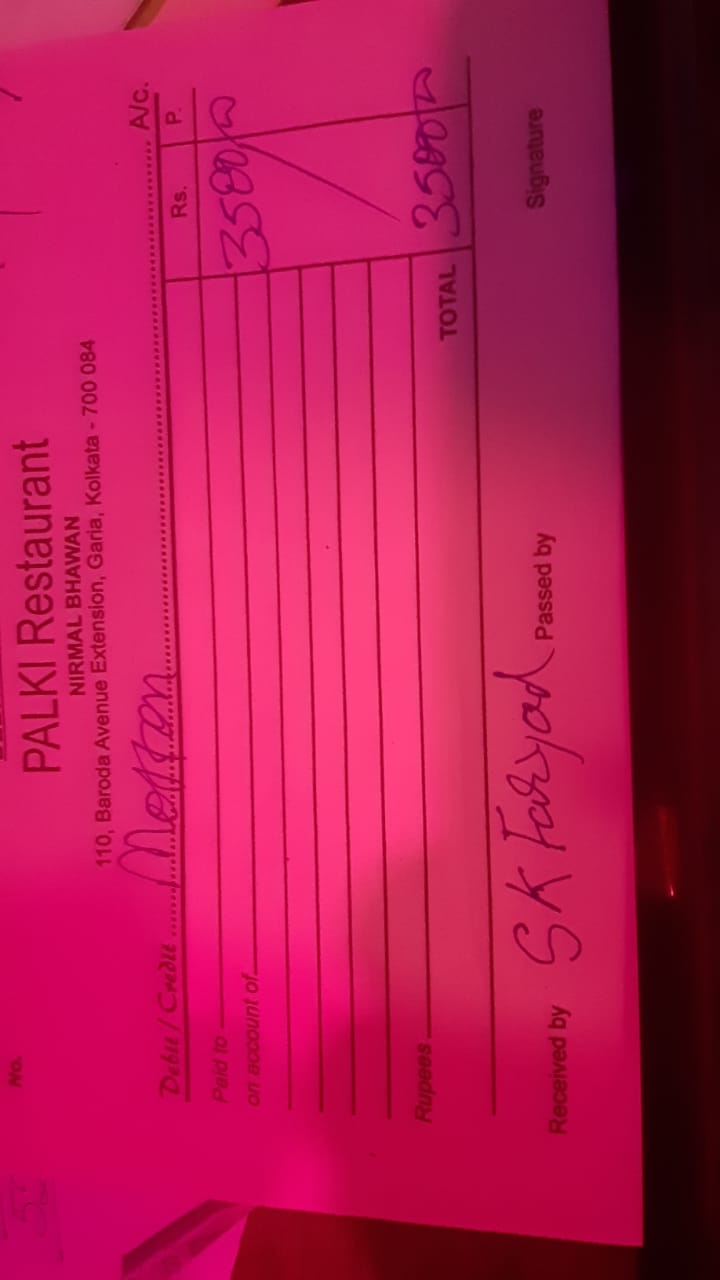 No.
PALKI Restaurant
NIRMAL BHAWAN
110, Baroda Avenue Extension, Garia, Kolkata - 700 084
Debit / Credit Motton A/c.
Rs. P.
Paid to 3500/-
on account of
Rupees TOTAL 3500/-
Received by SK Faryad Passed by Signature